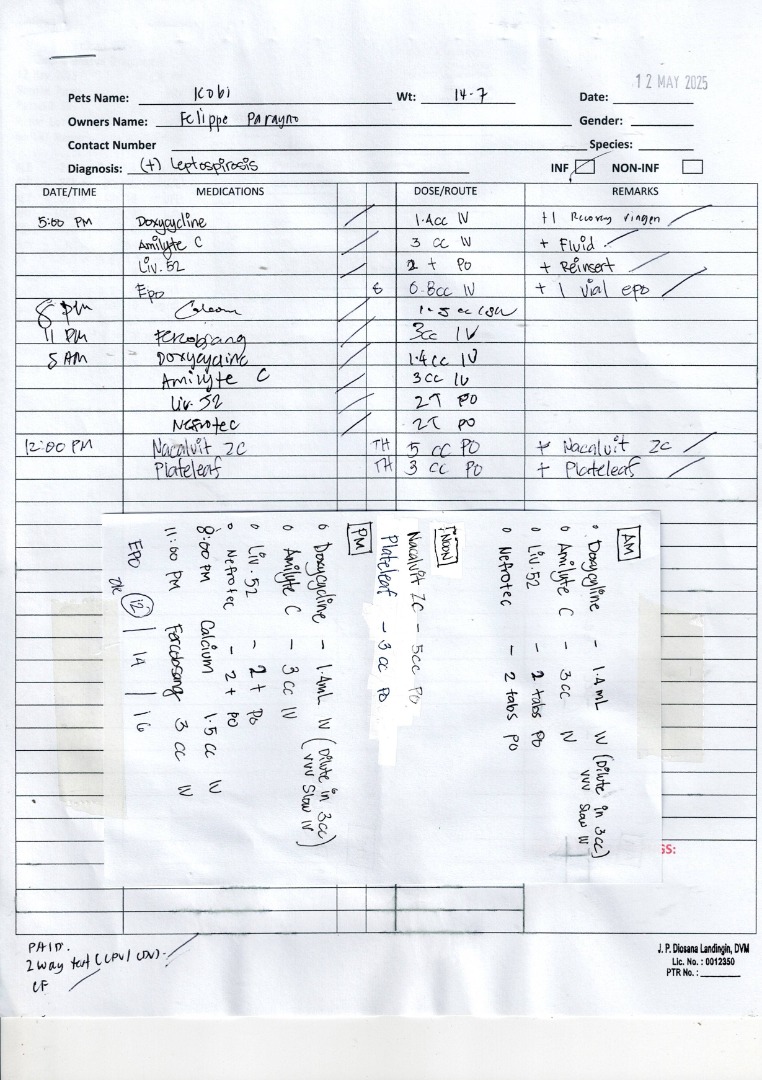 12 MAY 2025
Pets Name: Kobi Wt: 14.7 Date:
Owners Name: Felippe Parayno Gender:
Contact Number Species:
Diagnosis: (+) Leptospirosis INF NON-INF
DATE/TIME MEDICATIONS DOSE/ROUTE REMARKS
5:00 PM Doxycycline 1.4cc IV +1 Recovery ringen
Amilyte C 3 cc IV + Fluid
Liv.52 2 t PO + Reinsert
Epo 8 0.8cc IV + 1 vial epo
8 pm 1.5 cc
11 PM 3cc IV
5 AM Doxycycline 1.4cc IV
Amilyte C 3cc IV
Liv.52 2T PO
Nefrotec 2T PO
12:00 PM Nacalvit ZC TH 5 cc PO + Nacalvit ZC
Plateleaf TH 3 cc PO + Plateleaf
AM
Doxycyline - 1.4mL IV (Dilute in 3cc)
vvv Slow IV
Amilyte C - 3cc IV
Liv.52 - 2 tabs PO
Nefrotec - 2 tabs PO
NOON
Nacalvit ZC - 5cc PO
Plateleaf - 3 cc PO
PM
Doxycycline - 1.4mL IV (Dilute in 3cc)
(vvv Slow IV)
Amilyte C - 3cc IV
Liv.52 - 2 t PO
Nefrotec - 2 t PO
8:00 PM Calcium 1.5 cc IV
11:00 PM 3 cc IV
EPO 12 | 14 | 16
SS:
PAID.
2 way test (CPV/CDV).
CF
J. P. Diosana Landingin, DVM
Lic. No. : 0012350
PTR No. :